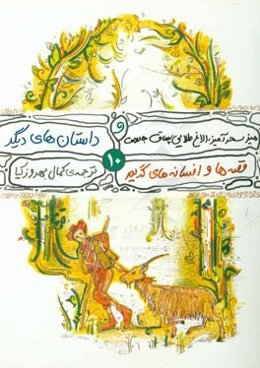 میز سحرآمیز، الاغ طلایی، چماق جادویی
و
داستان‌های دیگر
۱۰
قصه‌ها و افسانه‌های گریم
ترجمه‌ی کمال بهروزکیا